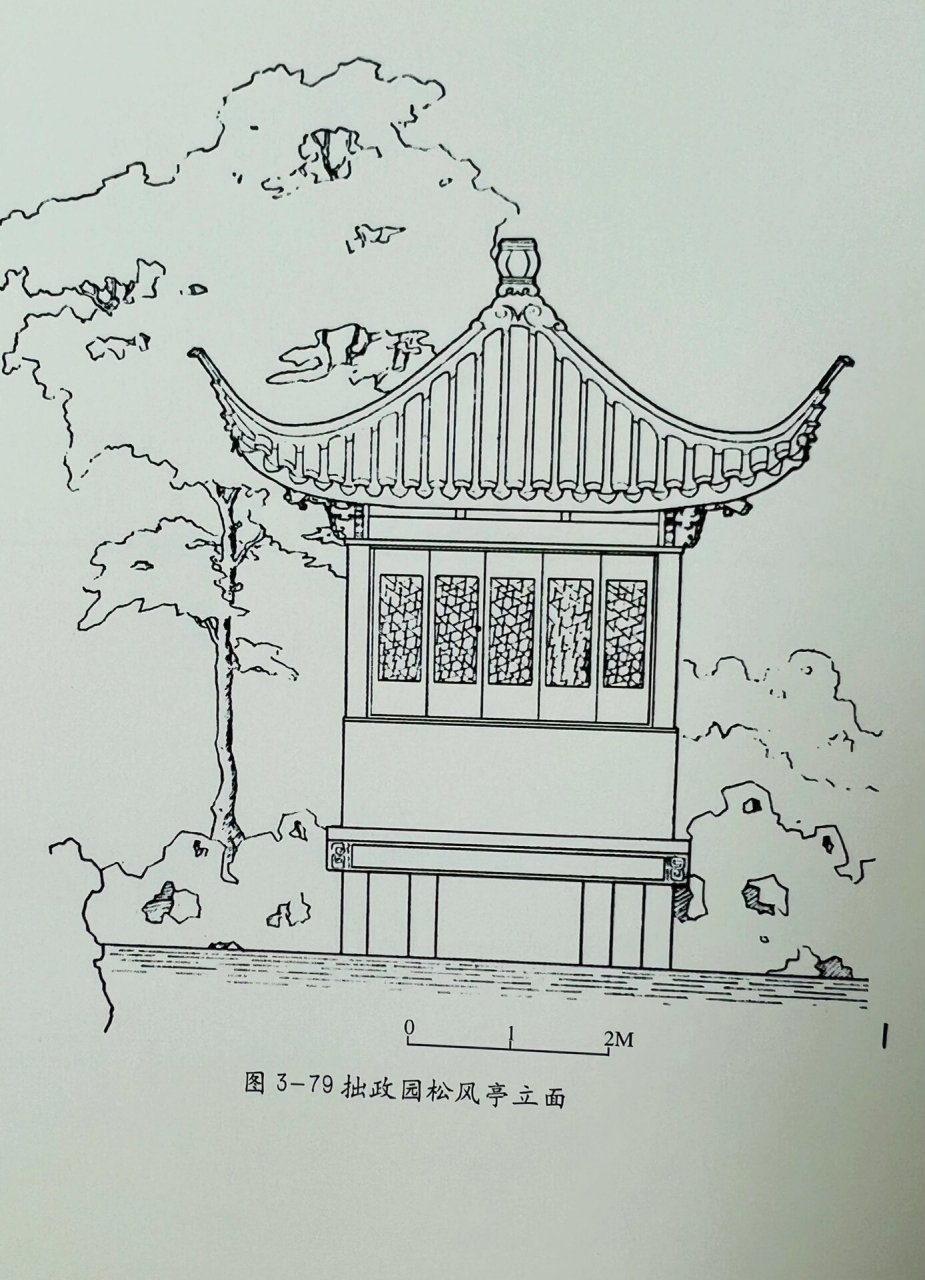 0 1 2M
图 3-79 拙政园松风亭立面